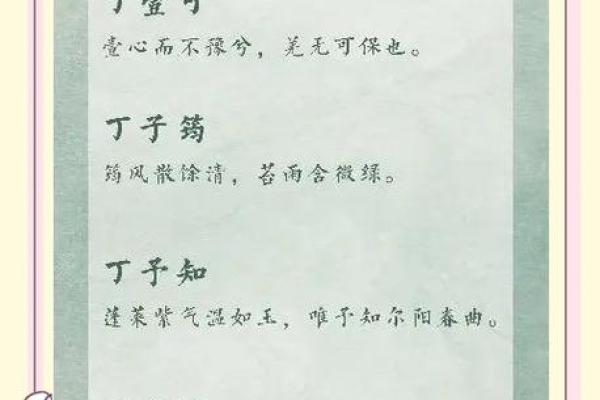 丁壹可
壹心而不豫兮，羌无可保也。
丁子筠
筠风散馀清，苔雨含微绿。
丁予知
蓬莱紫气温如玉，唯予知尔阳春曲。